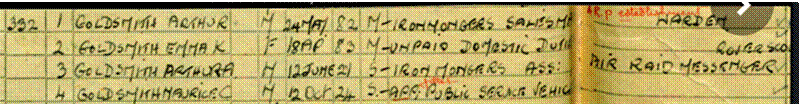 A.R.P. establishment
392 1 GOLDSMITH ARTHUR M 24 MAY 82 M - IRONMONGERS SALESMA WARDEN
2 GOLDSMITH EMMA K F 18 AP 83 M - UNPAID DOMESTIC DUTI
3 GOLDSMITH ARTHUR A M 12 JUNE 21 S - IRONMONGERS ASSI AIR RAID MESSENGER
4 GOLDSMITH MAURICE C M 12 OCT 24 S - PUBLIC SERVICE VEHIC